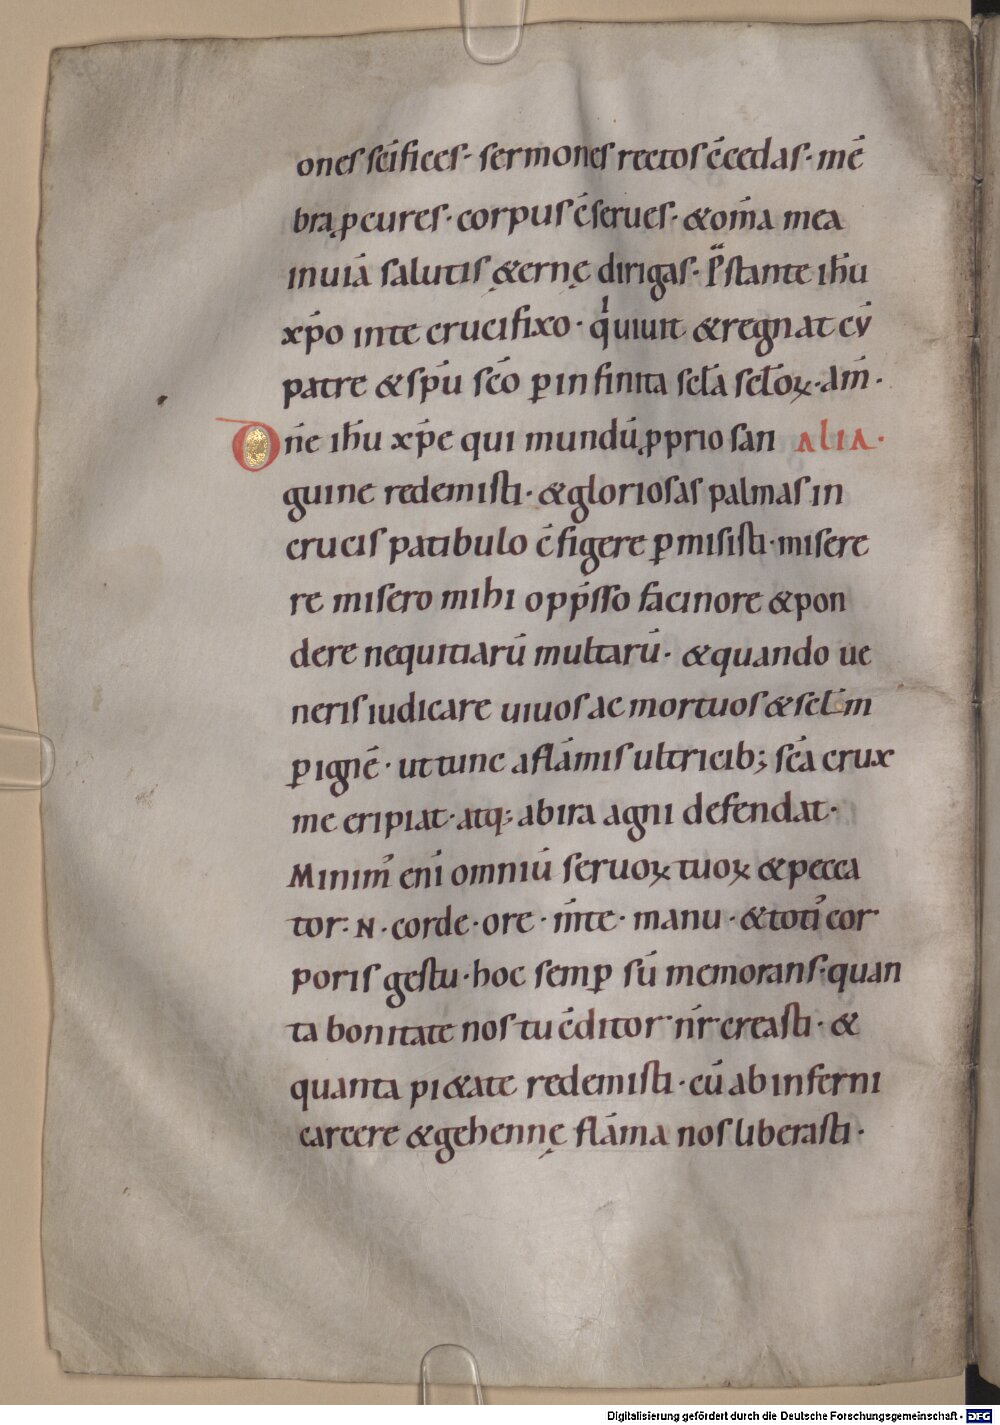 ones sc̄ifices· sermones rectos c̄cedas· mē
bra ꝓcures· corpus c̄serues· & om̄a mea
in uiā salutis &ernę dirigas· P̄stante ih̄u
xp̄o in te crucifixo· qͥ uiuit & regnat cū
patre & sp̄u sc̄o ꝑ infinita scl̄a scl̄oꝝ· am̄·
Dn̄e ih̄u xp̄e qui mundū ꝓprio san ALIA·
guine redemisti· & gloriosas palmas in
crucis patibulo c̄figere ꝑmisisti· misere
re misero mihi opp̄sso facinore & pon
dere nequitiarū multarū· & quando ue
neris iudicare uiuos ac mortuos & scl̄m
ꝑ ignē· ut tunc a flāmis ultricib; sc̄a crux
me eripiat· atq; ab ira agni defendat·
Minim᷒ eni̅ omniū seruoꝝ tuoꝝ & pecca
tor· N· corde· ore· m̄te· manu· & toti᷒ cor
poris gestu· hoc semꝑ sū memorans· quan
ta bonitate nos tu c̄ditor nr̄ creasti· &
quanta pi&ate redemisti· cū ab inferni
carcere & gehennę flāma nos liberasti·
Digitalisierung gefördert durch die Deutsche Forschungsgemeinschaft - DFG